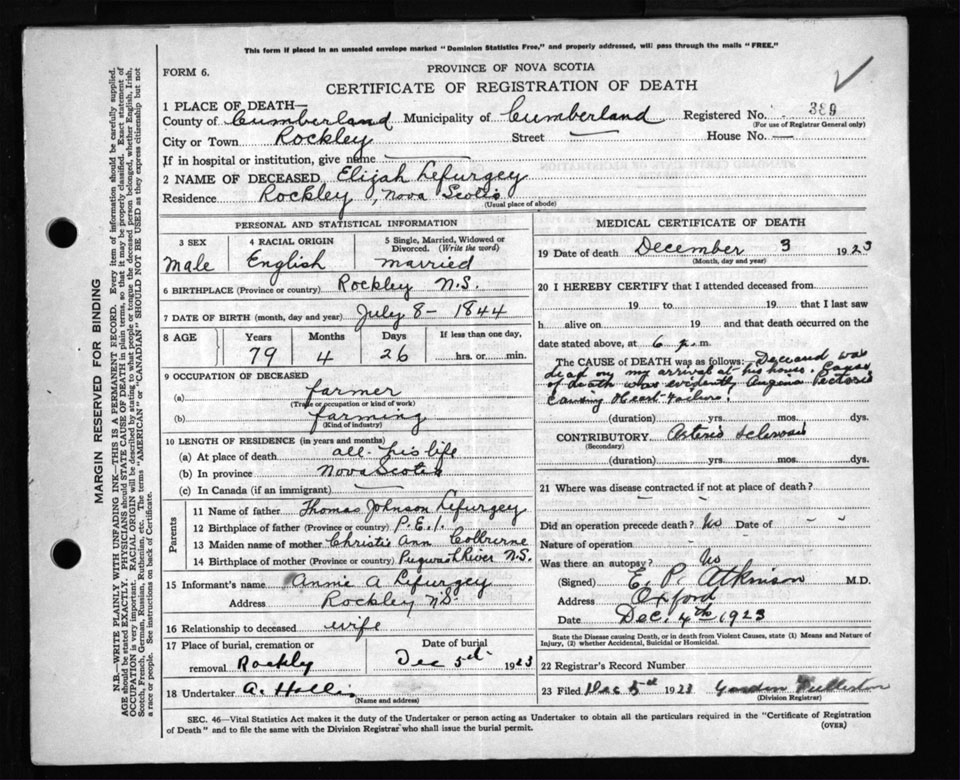 This form if placed in an unsealed envelope marked "Dominion Statistics Free," and properly addressed, will pass through the mails "FREE."
PROVINCE OF NOVA SCOTIA
FORM 6.
CERTIFICATE OF REGISTRATION OF DEATH
1 PLACE OF DEATH—
County of Cumberland Municipality of Cumberland Registered No. 389
(For use of Registrar General only)
City or Town Rockley Street — House No. —
If in hospital or institution, give name —
2 NAME OF DECEASED Elijah Lefurgey
Residence Rockley, Nova Scotia
(Usual place of abode)
PERSONAL AND STATISTICAL INFORMATION
3 SEX 4 RACIAL ORIGIN 5 Single, Married, Widowed or Divorced. (Write the word)
Male English married
6 BIRTHPLACE (Province or country) Rockley N.S.
7 DATE OF BIRTH (month, day and year) July 8 - 1844
8 AGE Years Months Days If less than one day,
79 4 26 hrs. or min.
9 OCCUPATION OF DECEASED
(a) farmer
(Trade or occupation or kind of work)
(b) farming
(Kind of industry)
10 LENGTH OF RESIDENCE (in years and months)
(a) At place of death all his life
(b) In province Nova Scotia
(c) In Canada (if an immigrant) —
Parents
11 Name of father Thomas Johnson Lefurgey
12 Birthplace of father (Province or country) P.E.I.
13 Maiden name of mother Christie Ann Colburne
14 Birthplace of mother (Province or country) Pugwash River N.S.
15 Informant's name Annie A Lefurgey
Address Rockley N.S.
16 Relationship to deceased wife
17 Place of burial, cremation or removal Rockly
Date of burial Dec 5th 1923
18 Undertaker A. Hollis
(Name and address)
MEDICAL CERTIFICATE OF DEATH
19 Date of death December 3 1923
(Month, day and year)
20 I HEREBY CERTIFY that I attended deceased from
19 to 19 that I last saw
h alive on 19 and that death occurred on
date stated above, at 6 p. m.
The CAUSE OF DEATH was as follows: Deceased was
dead on my arrival at his house. Cause
of death was evidently Angina Pectoris
causing Heart Failure.
(duration) yrs. mos. dys.
CONTRIBUTORY Arterio sclerosis
(Secondary)
(duration) yrs. mos. dys.
21 Where was disease contracted if not at place of death?
Did an operation precede death? No Date of - -
Nature of operation -
Was there an autopsy? No
(Signed) E. P. Atkinson M.D.
Address Oxford
Date Dec. 4th 1923
State the Disease causing Death, or in death from Violent Causes, state (1) Means and Nature of Injury, (2) whether Accidental, Suicidal or Homicidal.
22 Registrar's Record Number
23 Filed Dec 5th 1923
(Division Registrar)
SEC. 46—Vital Statistics Act makes it the duty of the Undertaker or person acting as Undertaker to obtain all the particulars required in the "Certificate of Registration
of Death" and to file the same with the Division Registrar who shall issue the burial permit.
(OVER)
MARGIN RESERVED FOR BINDING
N.B.—WRITE PLAINLY WITH UNFADING INK—THIS IS A PERMANENT RECORD. Every item of information should be carefully supplied.
AGE should be stated EXACTLY. PHYSICIANS should STATE CAUSE OF DEATH in plain terms, so that it may be properly classified. Exact statement of
OCCUPATION is very important. RACIAL ORIGIN will be described by stating to what people or tongue the deceased person belonged, whether English, Irish,
Scotch, French, German, Russian, Ruthenian, etc. The terms "AMERICAN" or "CANADIAN" SHOULD NOT BE USED as they express citizenship but not
a race or people. See instructions on back of Certificate.